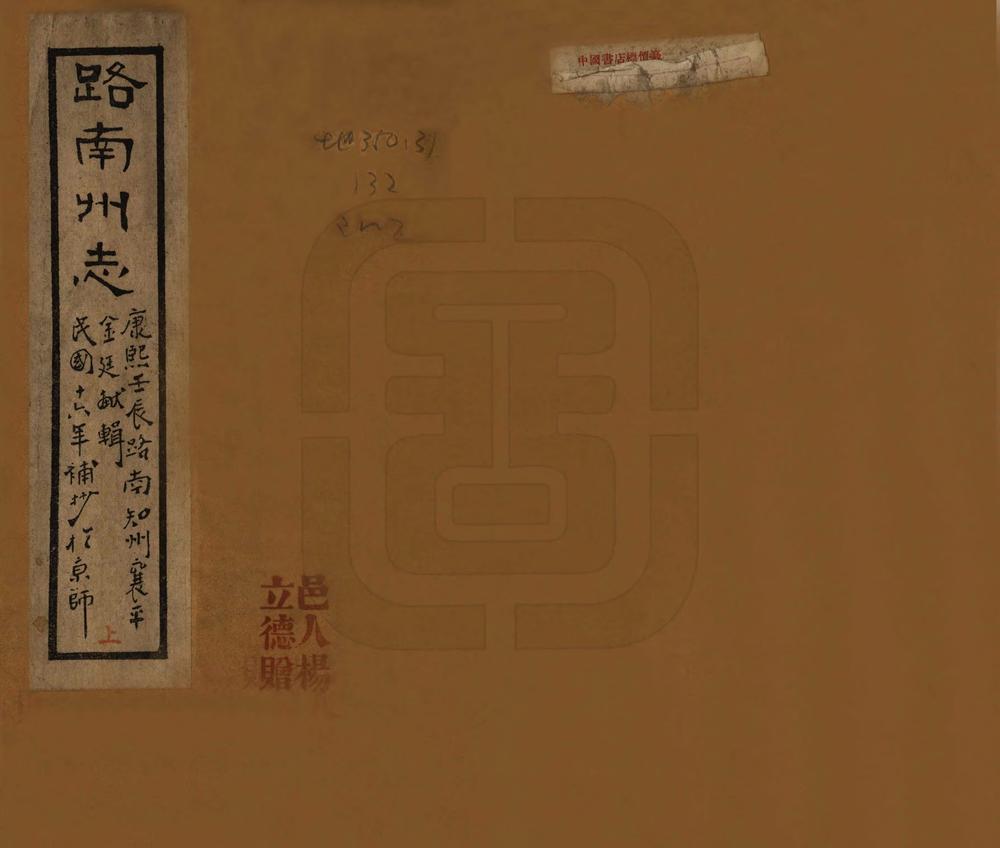 路南州志
康熙壬辰路南知州襄平
金廷献輯
民國十六年補抄於京師
上
中國書店標價簽
地350.31
132
邑人楊
立德贈